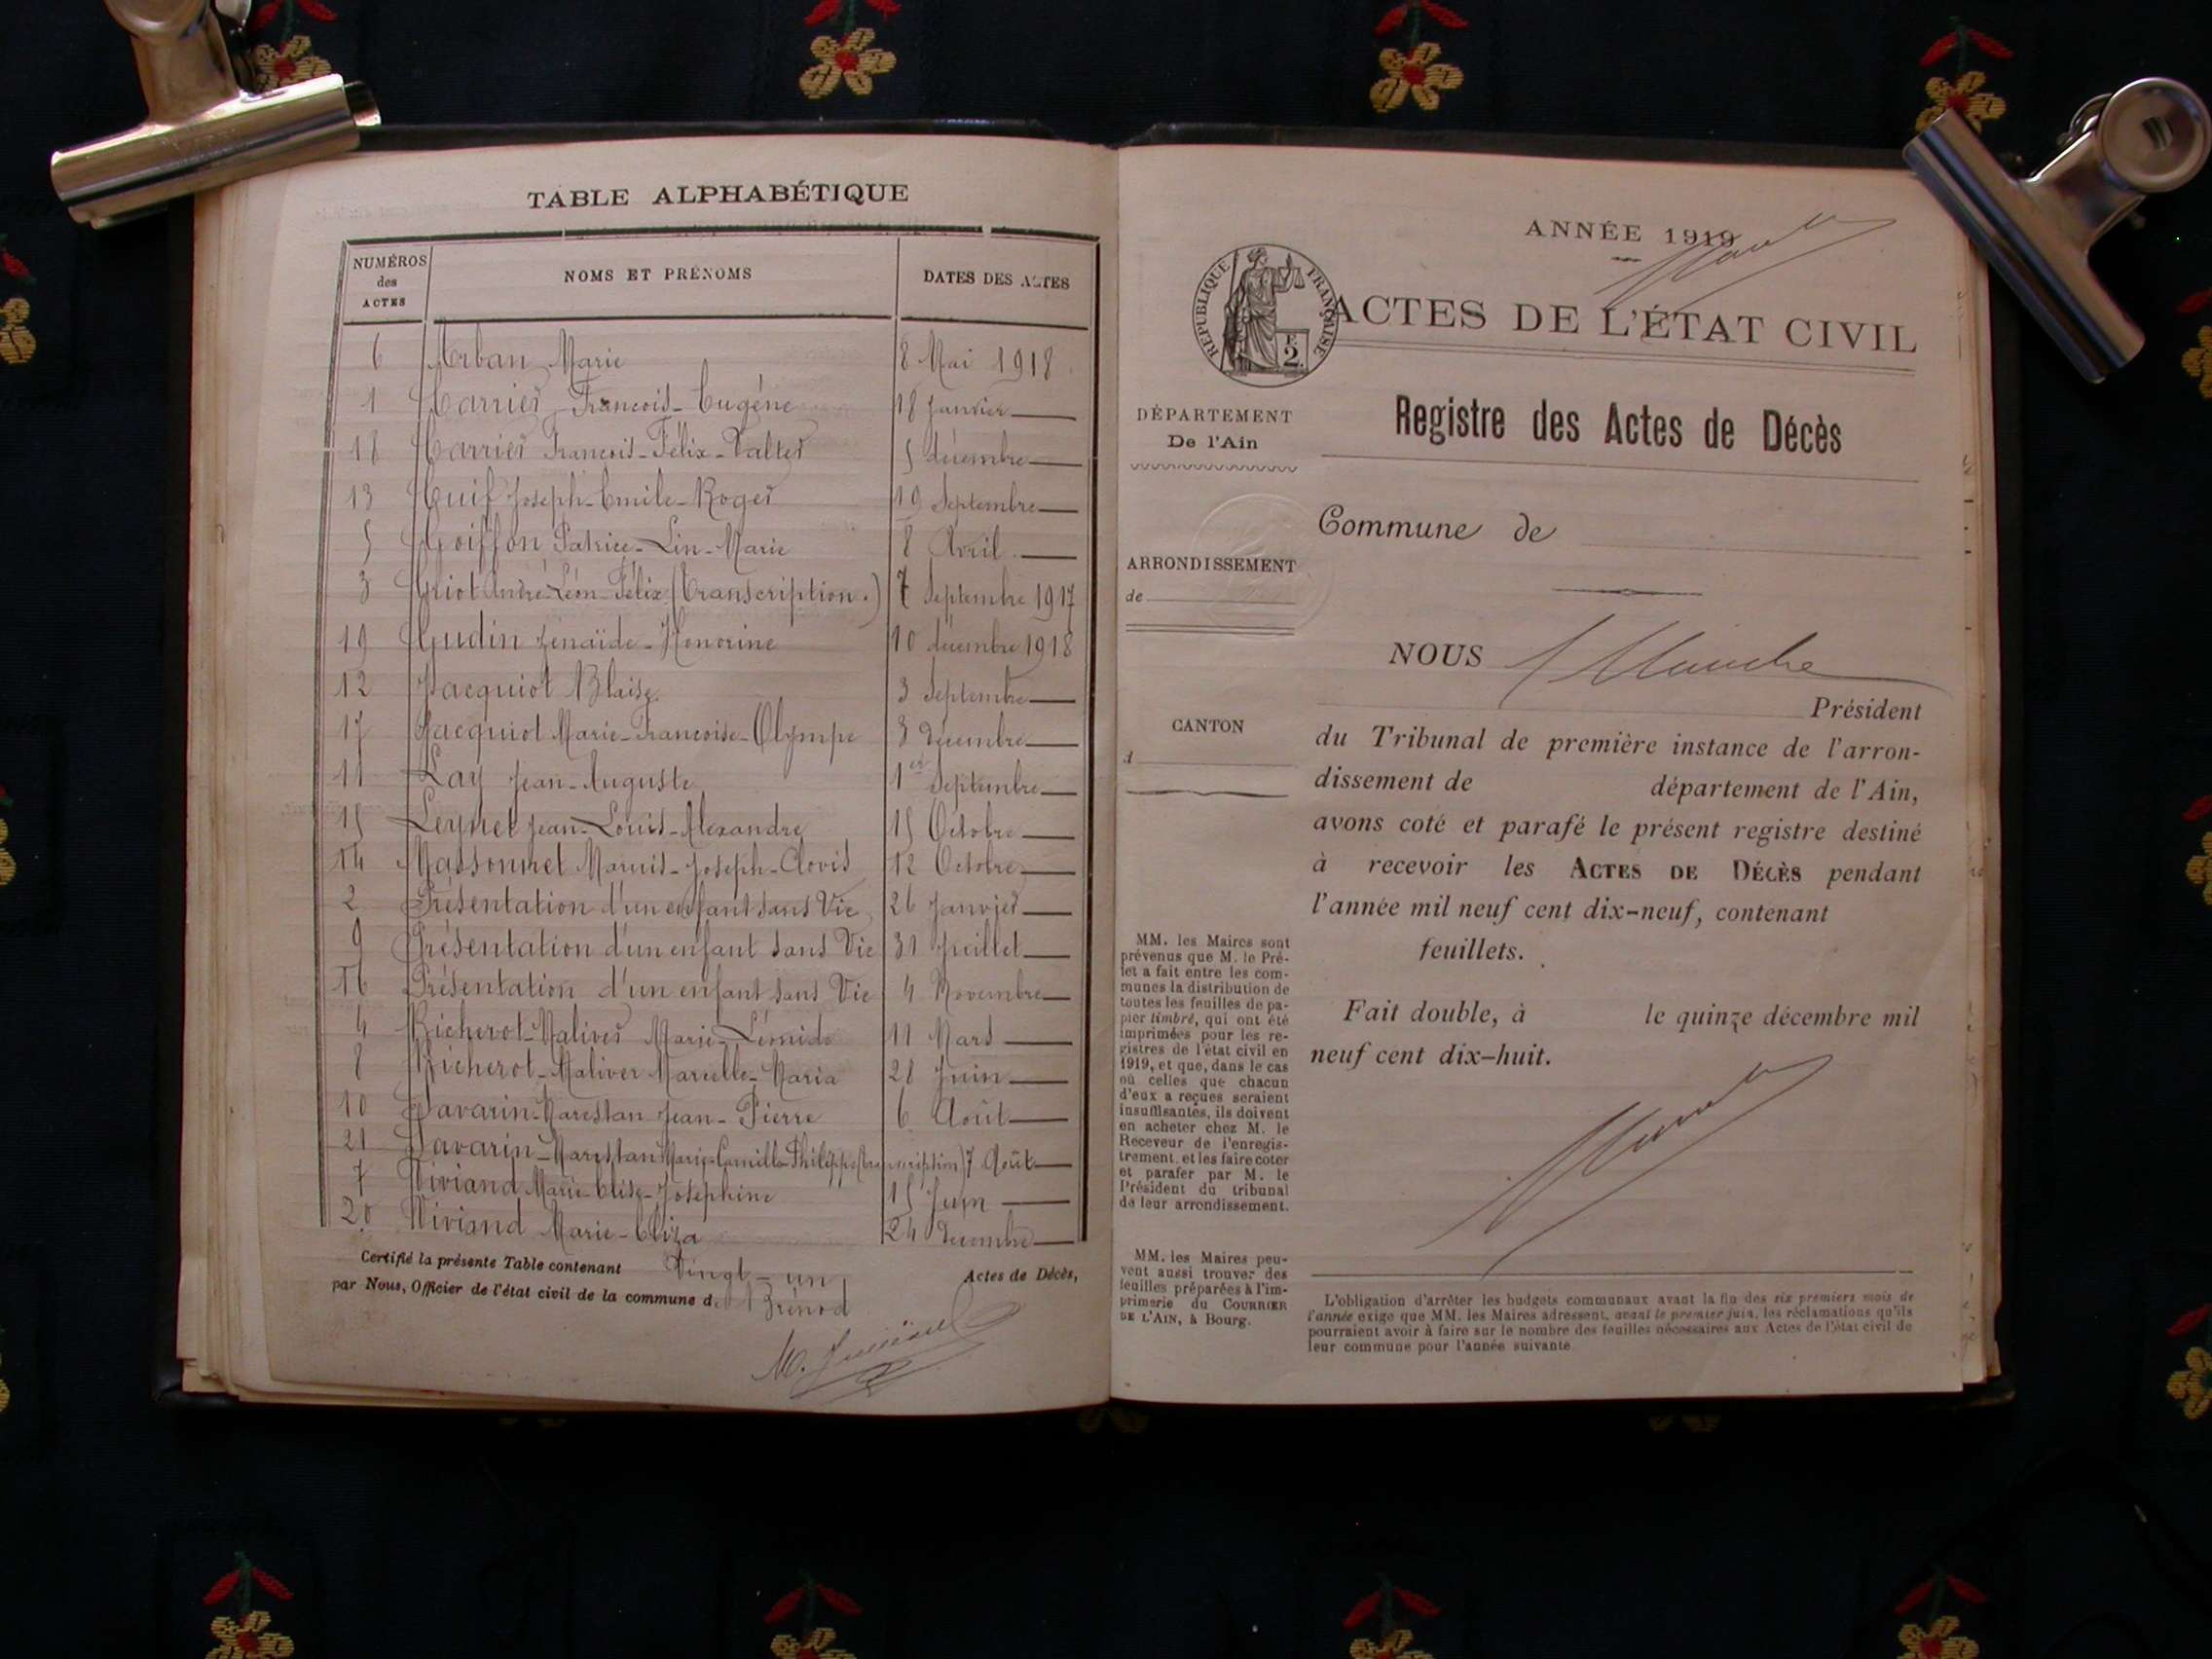 TABLE ALPHABÉTIQUE
NUMÉROS des ACTES NOMS ET PRÉNOMS DATES DES ACTES
6 Arban Marie 8 Mai 1918
1 Carrier François-Eugène 18 Janvier
18 Carrier François-Félix-Valter 5 décembre
13 Cuif Joseph-Emile-Roger 19 Septembre
5 Goiffon Patrice-Lin-Marie 8 Avril
3 Griot André-Léon-Félix (transcription.) 7 Septembre 1917
19 Gudin Zénaïde-Honorine 10 décembre 1918
12 Jacquiot Blaise 3 Septembre
17 Jacquiot Marie-Françoise-Olympe 3 décembre
11 Lay Jean-Auguste 1er Septembre
15 Leynet Jean-Louis-Alexandre 15 Octobre
14 Massonnet Marius-Joseph-Clovis 12 Octobre
2 Présentation d'un enfant sans Vie 26 Janvier
9 Présentation d'un enfant sans Vie 31 Juillet
16 Présentation d'un enfant sans Vie 4 Novembre
4 Richerot-Maliver Marie 11 Mars
8 Richerot-Maliver Marcelle-Maria 28 Juin
10 Savarin-Marestan Jean-Pierre 6 Août
21 Savarin-Marestan Marie-Camille-Philippe (transcription) 7 Août
7 Viviand Marie-Elise-Joséphine 15 Juin
20 Viviand Marie-Eliza 24 décembre
Certifié la présente Table contenant Vingt-un Actes de Décès,
par Nous, Officier de l'état civil de la commune d Brénod
ANNÉE 1919
RÉPUBLIQUE FRANÇAISE
2
ACTES DE L'ÉTAT CIVIL
DÉPARTEMENT
De l'Ain
Registre des Actes de Décès
Commune de
ARRONDISSEMENT
de
NOUS
Président
CANTON
d
du Tribunal de première instance de l'arron-
dissement de département de l'Ain,
avons coté et parafé le présent registre destiné
à recevoir les ACTES DE DÉCÈS pendant
l'année mil neuf cent dix-neuf, contenant
feuillets.
Fait double, à le quinze décembre mil
neuf cent dix-huit.
MM. les Maires sont
prévenus que M. le Pré-
fet a fait entre les com-
munes la distribution de
toutes les feuilles de pa-
pier timbré, qui ont été
imprimées pour les re-
gistres de l'état civil en
1919, et que, dans le cas
où celles que chacun
d'eux a reçues seraient
insuffisantes, ils doivent
en acheter chez M. le
Receveur de l'enregis-
trement, et les faire coter
et parafer par M. le
Président du tribunal
de leur arrondissement.
MM. les Maires peu-
vent aussi trouver des
feuilles préparées à l'im-
primerie du COURRIER
DE L'AIN, à Bourg.
L'obligation d'arrêter les budgets communaux avant la fin des six premiers mois de
l'année exige que MM. les Maires adressent, avant le premier juin, les réclamations qu'ils
pourraient avoir à faire sur le nombre des feuilles nécessaires aux Actes de l'état civil de
leur commune pour l'année suivante